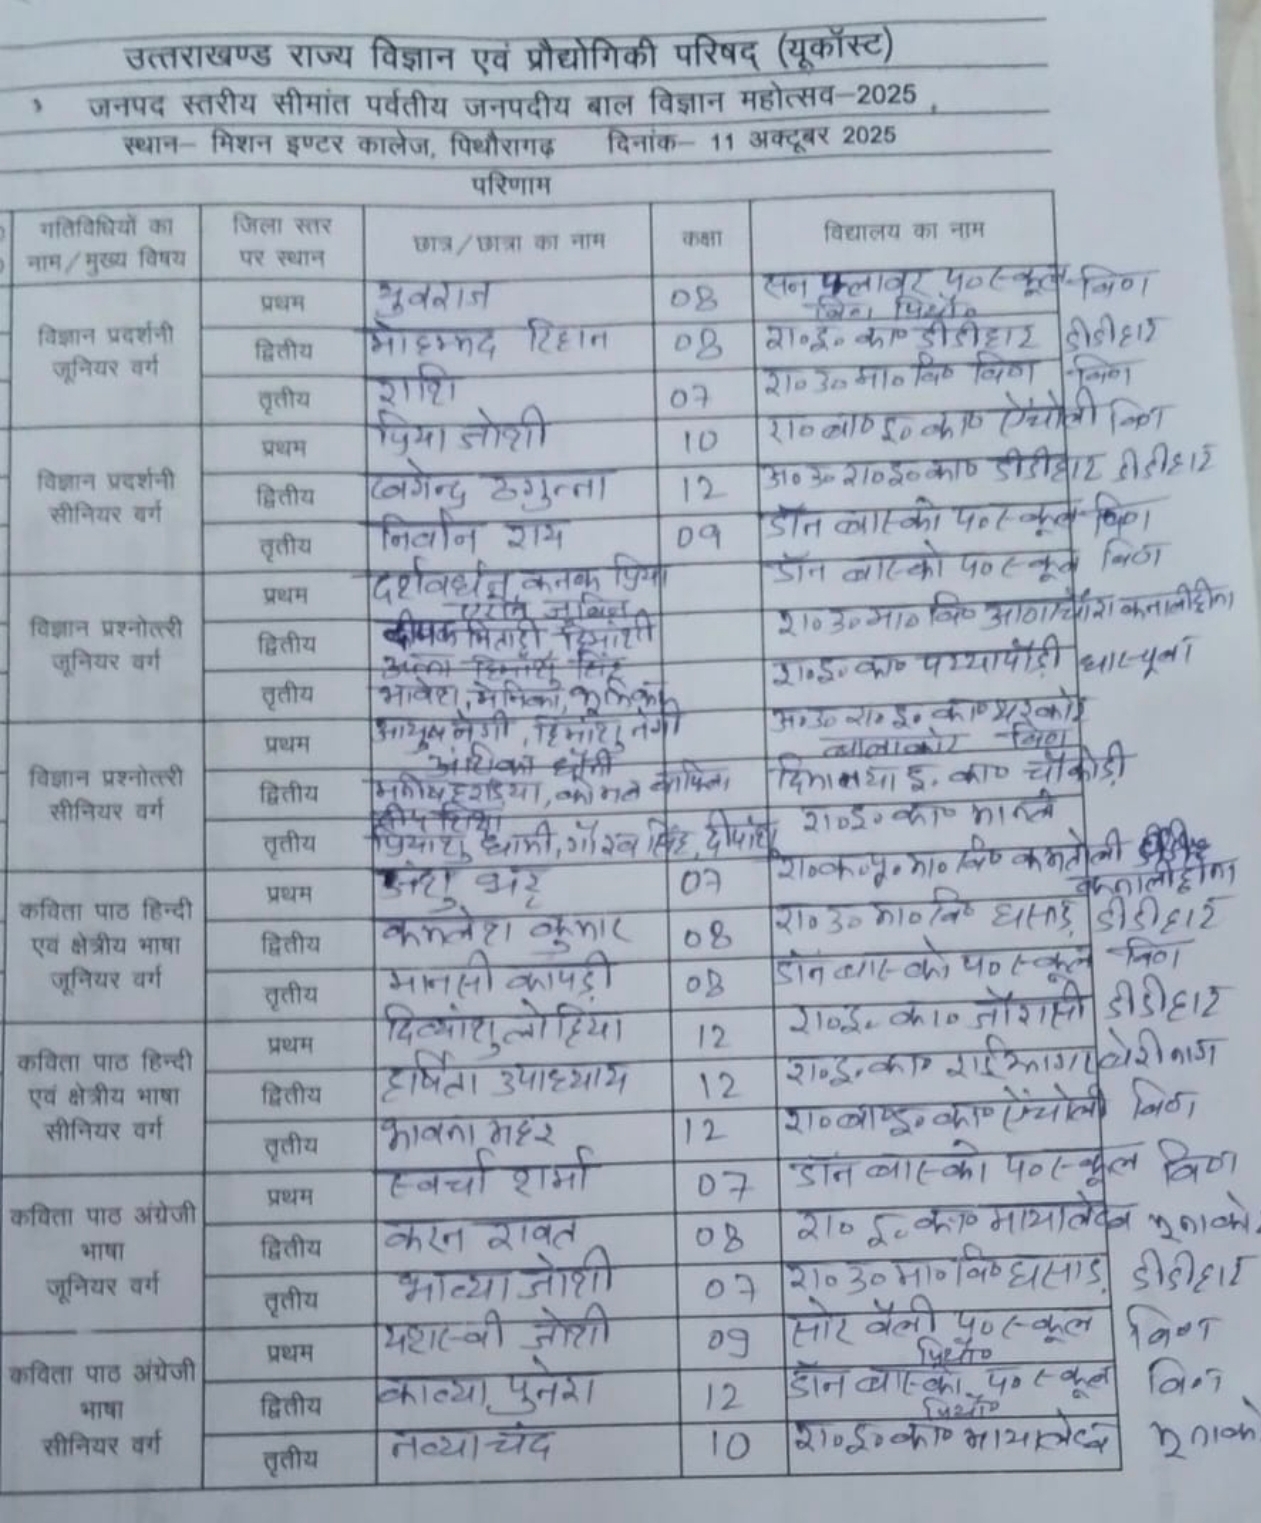 उत्तराखण्ड राज्य विज्ञान एवं प्रौद्योगिकी परिषद (यूकॉस्ट)
जनपद स्तरीय सीमांत पर्वतीय जनपदीय बाल विज्ञान महोत्सव–2025
स्थान– मिशन इण्टर कालेज, पिथौरागढ़ दिनांक– 11 अक्टूबर 2025
परिणाम
गतिविधियों का नाम/मुख्य विषय जिला स्तर पर स्थान छात्र/छात्रा का नाम कक्षा विद्यालय का नाम
विज्ञान प्रदर्शनी जूनियर वर्ग
प्रथम युवराज 08 सन फ्लावर प०स्कूल बिण पिथौ० बिण
द्वितीय मोहम्मद रिहान 08 रा०इ०का० डीडीहाट डीडीहाट
तृतीय राशि 07 रा०उ०मा०वि० बिण बिण
विज्ञान प्रदर्शनी सीनियर वर्ग
प्रथम प्रिया जोशी 10 रा०बा०इ०का० ऐंचोली बिण
द्वितीय खगेन्द्र ठगुन्ना 12 अ०उ०रा०इ०का० डीडीहाट डीडीहाट
तृतीय निर्वान राय 09 डॉन बास्को प०स्कूल बिण
विज्ञान प्रश्नोत्तरी जूनियर वर्ग
प्रथम कनक प्रिया डॉन बास्को प०स्कूल बिण
द्वितीय दीपक हिमांशी रा०उ०मा०वि० कनालीछीना
तृतीय भावेश, मेनिका, भूमिका रा०इ०का० धारचूला
विज्ञान प्रश्नोत्तरी सीनियर वर्ग
प्रथम आयुष नेगी, हिमांशु नेगी अंशिका धौनी अ०उ०रा०इ०का० बिण
द्वितीय कोमल कापिता हिमालया इ. का० चौकोड़ी
तृतीय प्रियांशु धामी, गौरव सिंह, दीपांशु रा०इ०का०
कविता पाठ हिन्दी एवं क्षेत्रीय भाषा जूनियर वर्ग
प्रथम अंशु भट्ट 07 रा०क०पू०मा०वि० कमतोली कनालीछीना
द्वितीय कमलेश कुमार 08 रा०उ०मा०वि० घसाड़ डीडीहाट
तृतीय मानसी कापड़ी 08 डॉन बास्को प०स्कूल बिण
कविता पाठ हिन्दी एवं क्षेत्रीय भाषा सीनियर वर्ग
प्रथम दिव्यांशु लोहिया 12 रा०इ०का० जौरासी डीडीहाट
द्वितीय हर्षिता उपाध्याय 12 रा०इ०का० राईआगर बेरीनाग
तृतीय भावना महर 12 रा०बा०इ०का० ऐंचोली बिण
कविता पाठ अंग्रेजी भाषा जूनियर वर्ग
प्रथम स्वर्चा शर्मा 07 डॉन बास्को प०स्कूल बिण
द्वितीय करन रावत 08 रा०इ०का०
तृतीय भाव्या जोशी 07 रा०उ०मा०वि० घसाड़ डीडीहाट
कविता पाठ अंग्रेजी भाषा सीनियर वर्ग
प्रथम यशस्वी जोशी 09 सोर वैली प०स्कूल पिथौ० बिण
द्वितीय काव्या पुनेरा 12 डॉन बास्को प०स्कूल पिथौ० बिण
तृतीय नव्या चंद 10 रा०इ०का०